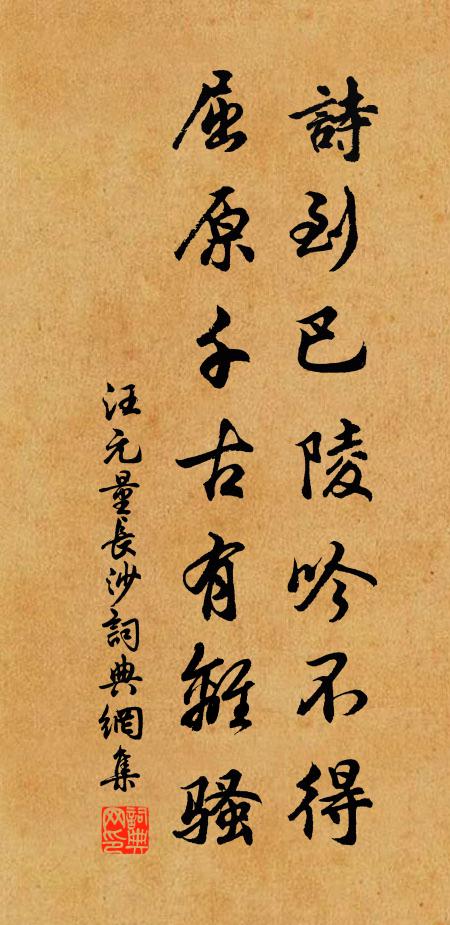 詩到巴陵吟不得
屈原千古有離騷
汪元量長沙詞典網集
詞典網印